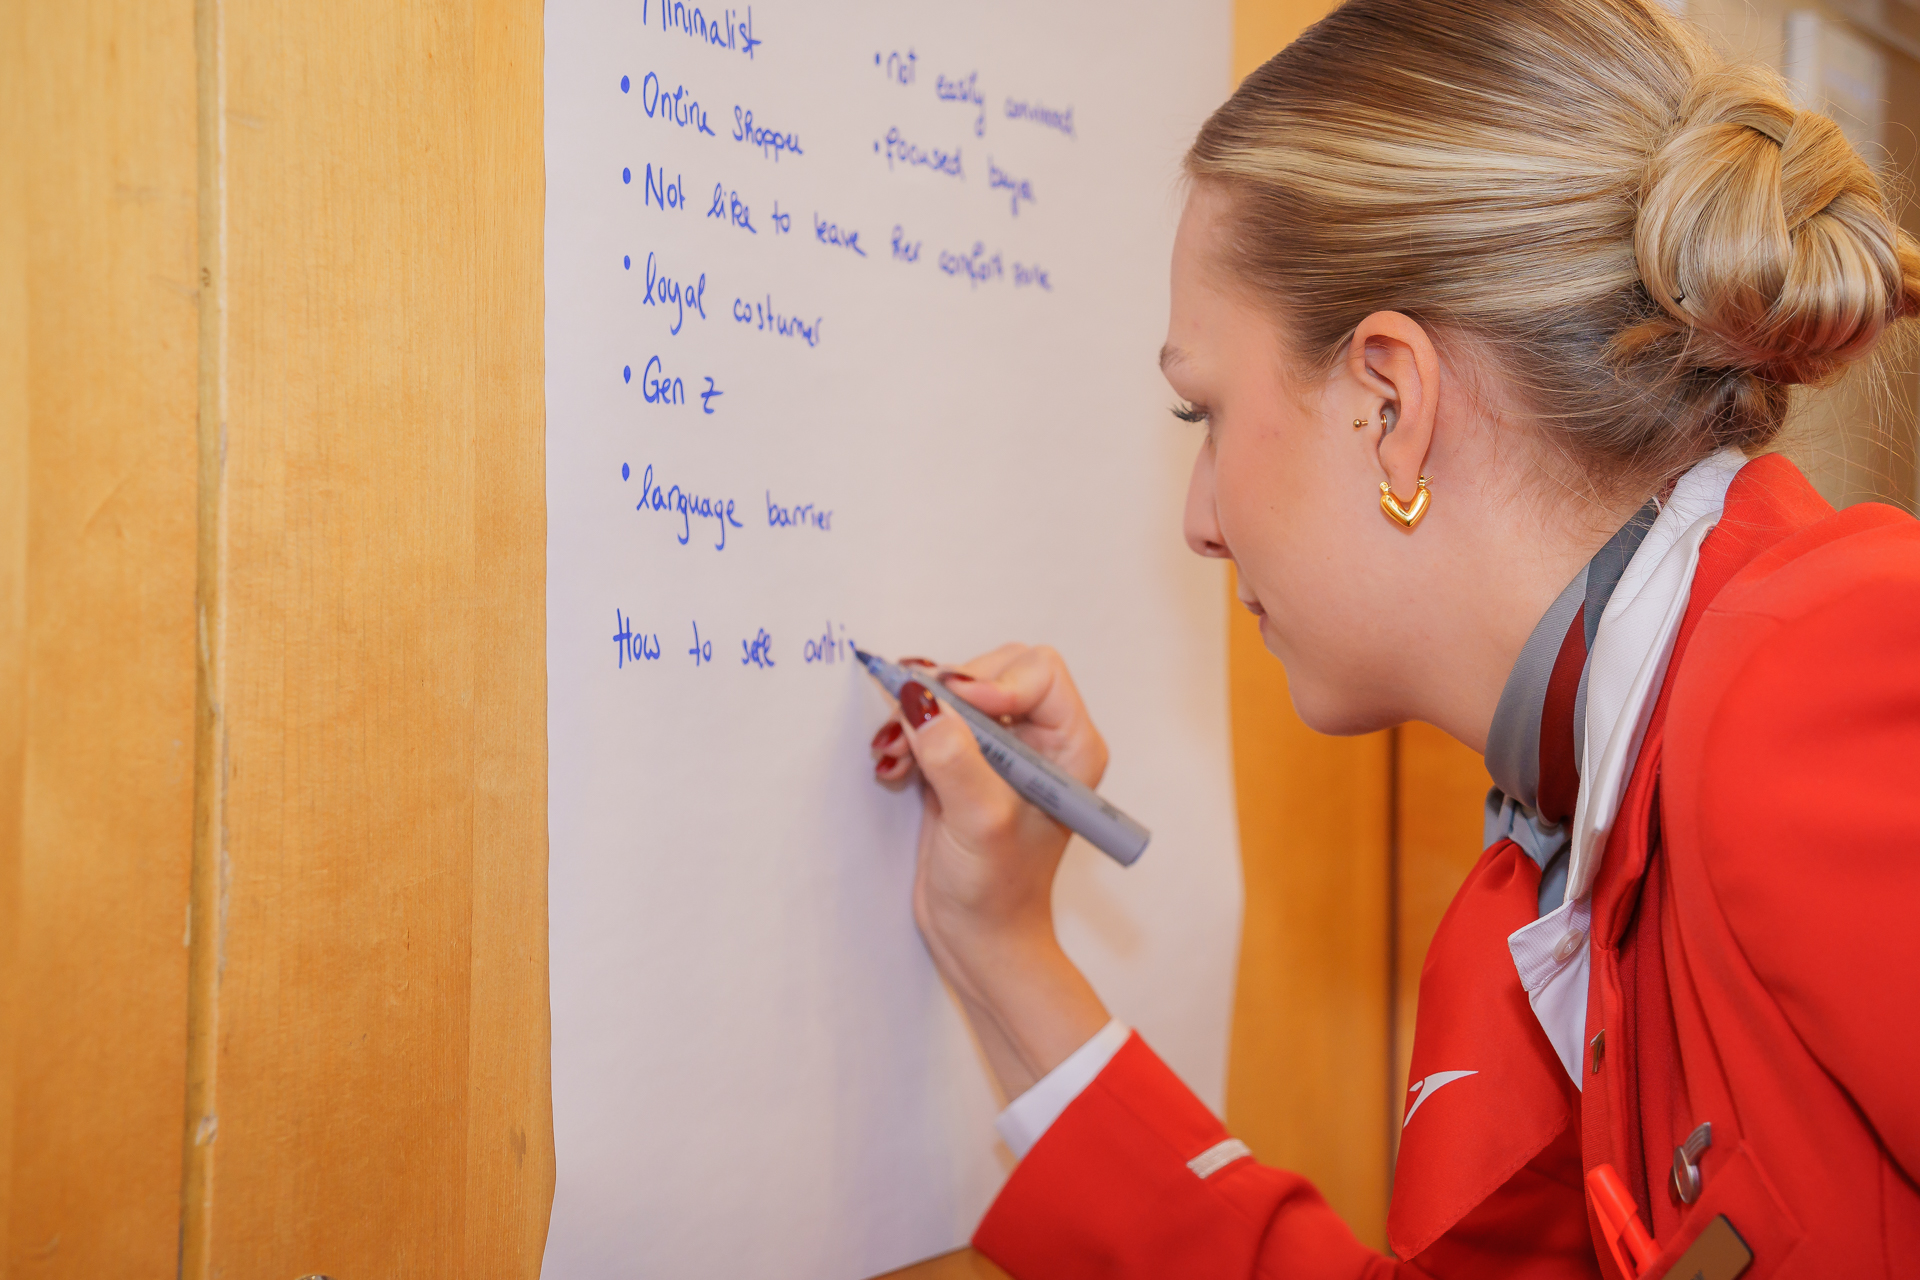 Minimalist
• not easily convinced
• Online Shopper
• focused buyer
• Not like to leave her comfort zone
• loyal costumer
• Gen Z
• language barrier
How to sell anti